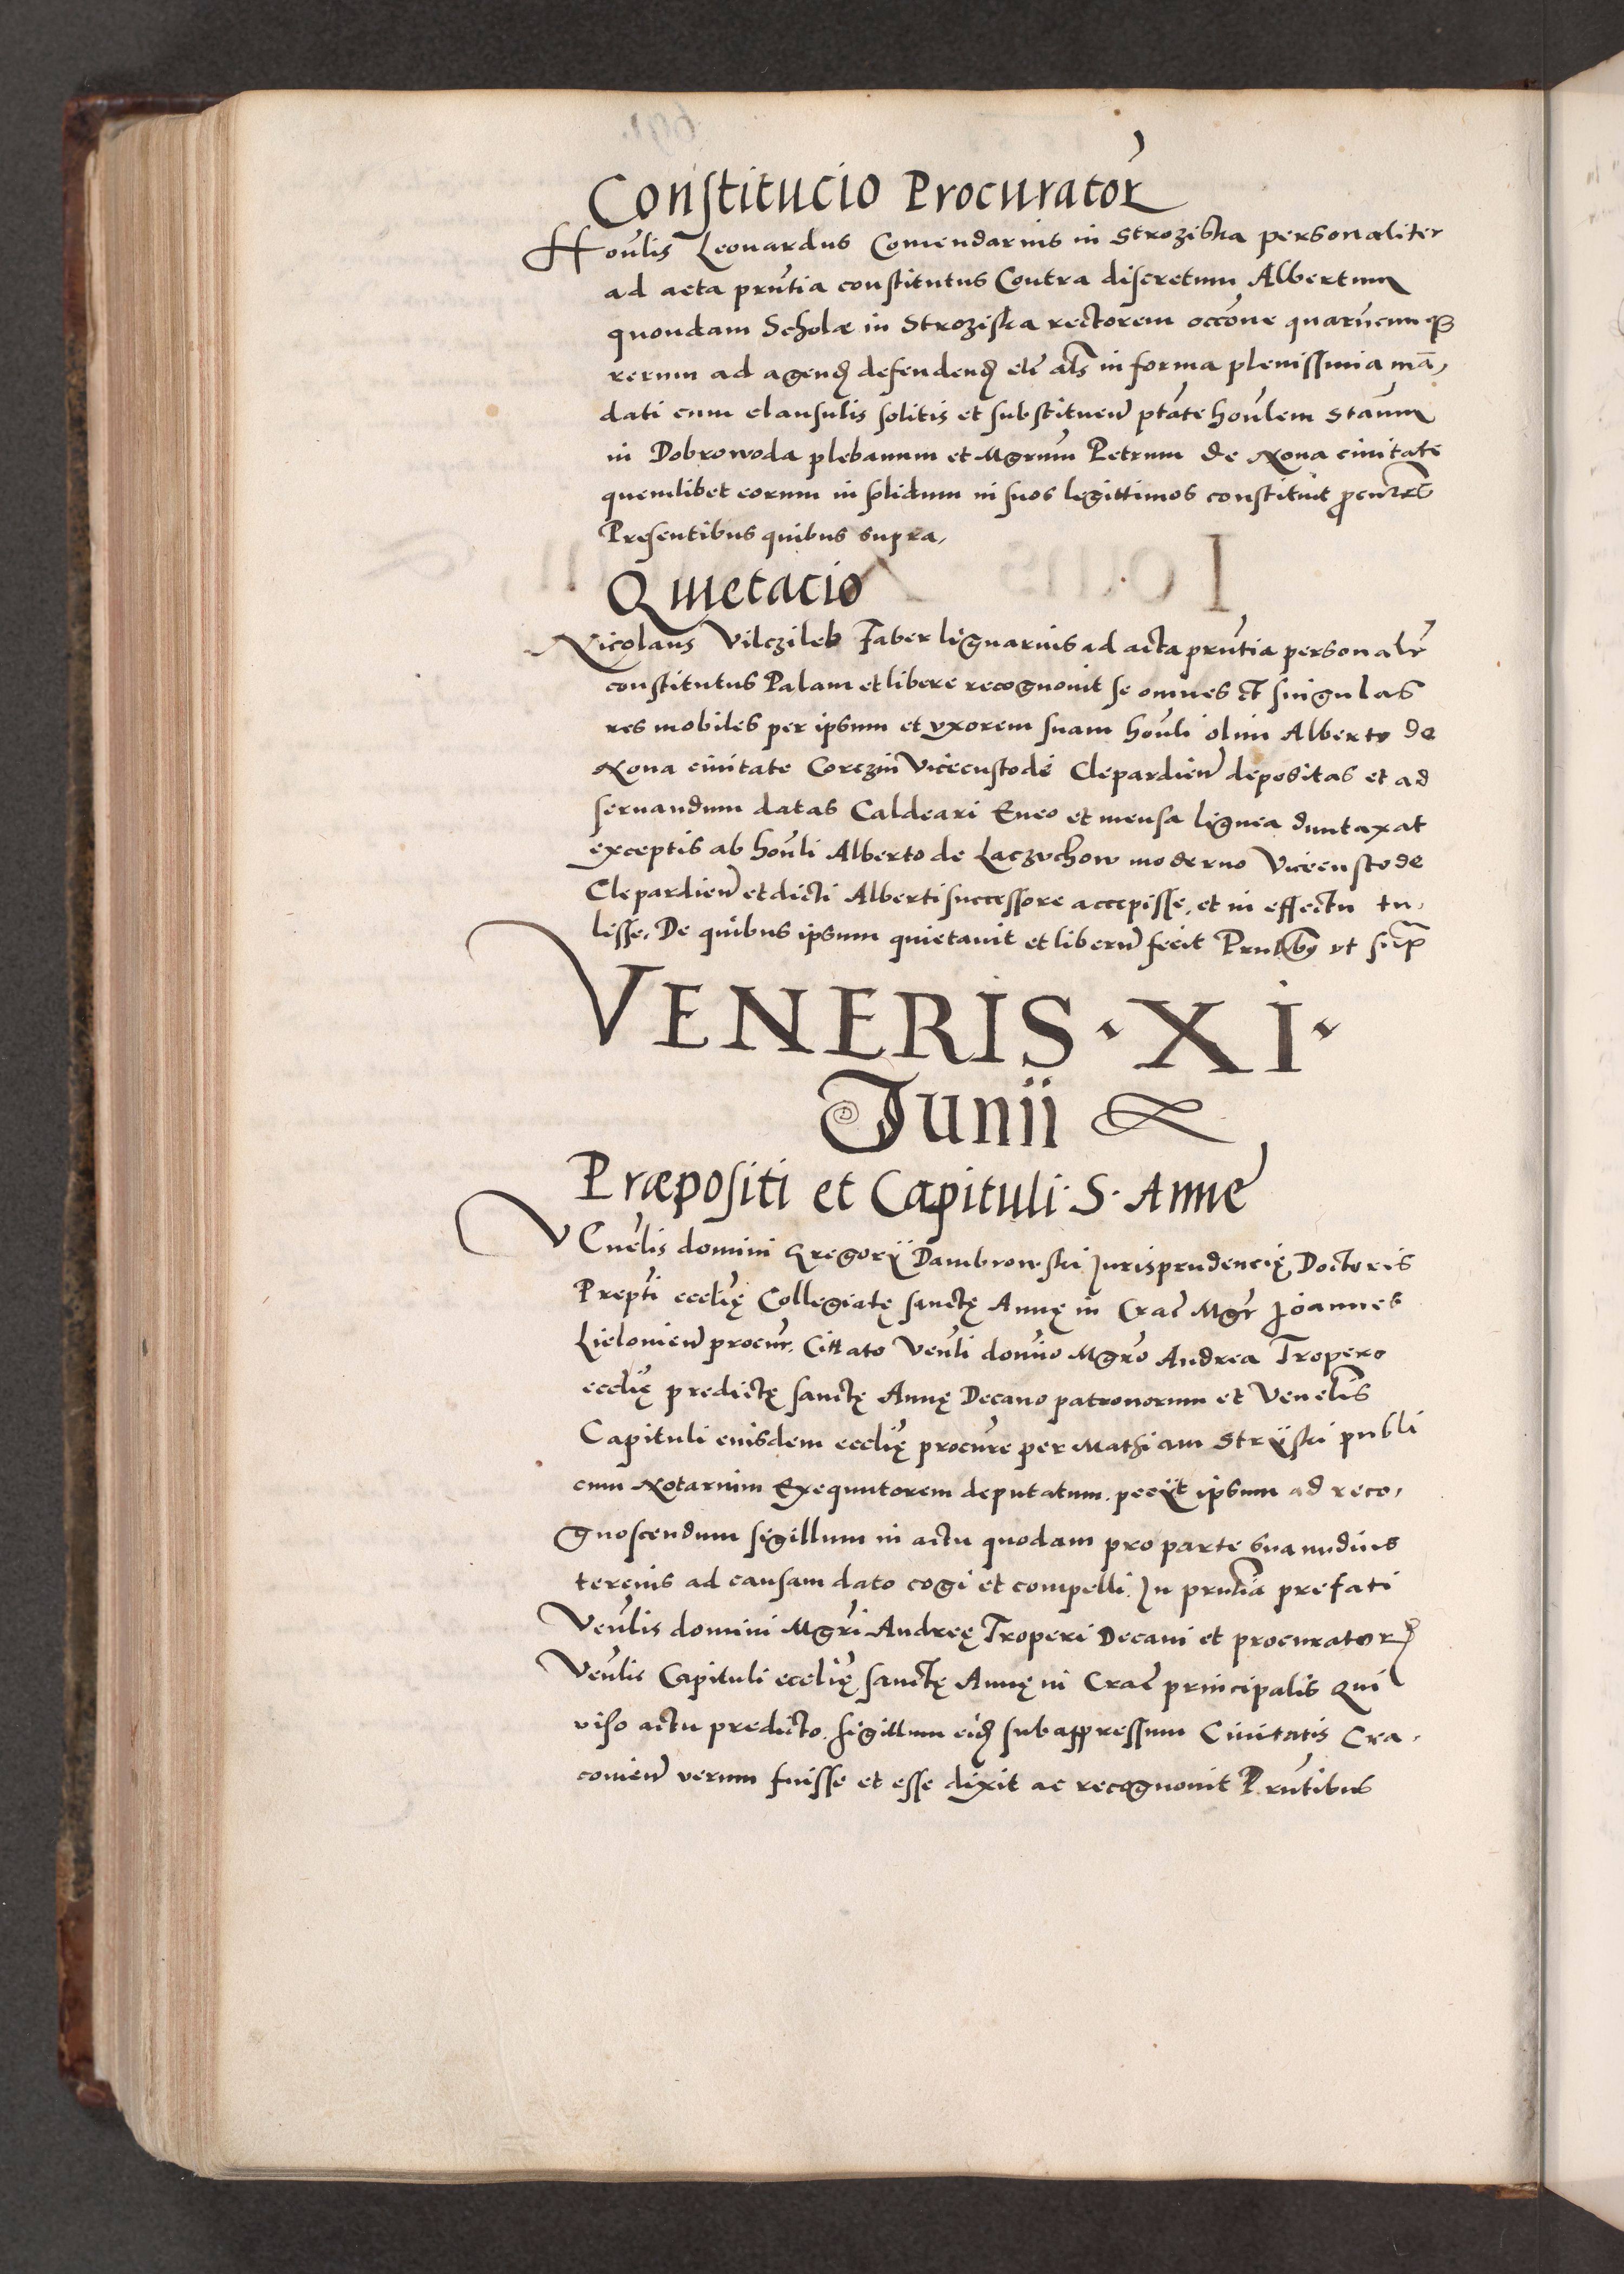 Constitucio Procurator
Hoñlis Leonardus Comendarius in Stroziska personaliter
ad acta pñtia constitutus Contra discretum Albertum
quondam Scholæ in Stroziska rectorem occõne quarũcunq
rerum ad agend defendend etc̃ als in forma plenissima mã,
dati cum clausulis solitis et substituen̄ ptãte hoñlem Stañm
in Dobrowoda plebanum et Mgrum Petrum de Noua ciuitate
quemlibet eorum in solidum in suos legittimos constituit ꝓcur̃es
Presentibus quibus supra,
Quietacio
Nicolaus Vilczileb Faber lignarius ad acta pñtia personalr̃
constitutus Palam et libere recognouit se omnes et singulas
res mobiles per ipsum et vxorem suam hoñli olim Alberto de
Noua ciuitate Corczin Vicecustode Clepardien̄ depositas et ad
seruandum datas Caldeari Eneo et mensa lignea duntaxat
exceptis ab hoñli Alberto de Laczvchow moderno Vicecustode
Clepardien̄ et dicti Alberti successore accepisse, et in effectu tu,
lisse. De quibus ipsum quietauit et liberũ fecit Pñtibus vt supr̃
VENERIS · XI ·
Junii
Præpositi et Capituli · S · Anne
VEneñlis domini Gregorÿ Dambrowski Jurisprudencię Doctoris
Prepti ecclię Collegiatę sanctę Annę in Crac̃ Mgr Joannes
Lielouien̄ procur̃. Cittato Veñli domino Mgro Andrea Tropero
ecclię predictę sanctę Annę Decano patronorum et Veneñlis
Capituli eiusdem ecclię procur̃e per Mathiam Strÿski publi
cum Notarium Exequutorem deputatum, peciit ipsum ad reco,
gnoscendum sigillum in actu quodam pro parte sua nudius
tercius ad causam dato cogi et compelli. In pñtia prefati
Veñlis domini Mgri Andreę Troperi Decani et procurator
Veñlis Capituli ecclię sanctę Annę in Crac̃ principalis Qui
viso actu predicto, sigillum eid subappressum Ciuitatis Cra,
couien̄ verum fuisse et esse dixit ac recognouit Pñtibus